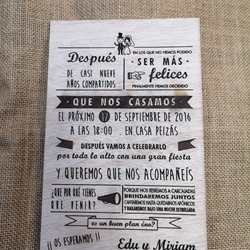 Después
DE CASI NUEVE
AÑOS COMPARTIDOS
EN LOS QUE NO HEMOS PODIDO
SER MÁS
felices
FINALMENTE HEMOS DECIDIDO
QUE NOS CASAMOS
EL PRÓXIMO 17 DE SEPTIEMBRE DE 2016
A LAS 18:00 . EN CASA PEIZÁS
DESPUÉS VAMOS A CELEBRARLO
por todo lo alto con una gran fiesta
Y QUEREMOS QUE NOS ACOMPAÑEÍS
¿QUE POR QUÉ TIENES
QUE VENIR?
PORQUE NOS REIREMOS A CARCAJADAS
BRINDAREMOS JUNTOS
CANTAREMOS HASTA QUEDARNOS AFÓNICOS
Y BAILAREMOS BAJO UNA NOCHE ESTRELLADA
es un buen plan éno?
¡¡ OS ESPERAMOS !!
Edu y Miriam